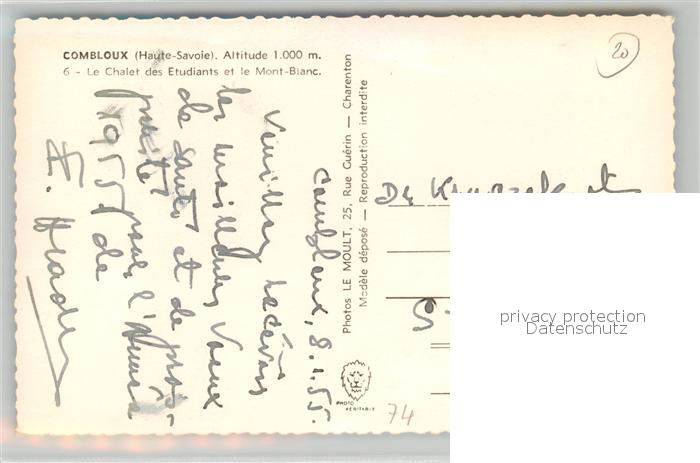 COMBLOUX (Haute-Savoie). Altitude 1.000 m.
6 - Le Chalet des Etudiants et le Mont-Blanc.
20
Combloux, 8.1.55.
Veuillez recevoir
les meilleurs vœux
de santé et de pros-
périté pour l'Année
1955 de
Photos LE MOULT, 25, Rue Guérin — Charenton
Modèle déposé — Reproduction interdite
PHOTO
VÉRITABLE
Dr
74
privacy protection
Datenschutz